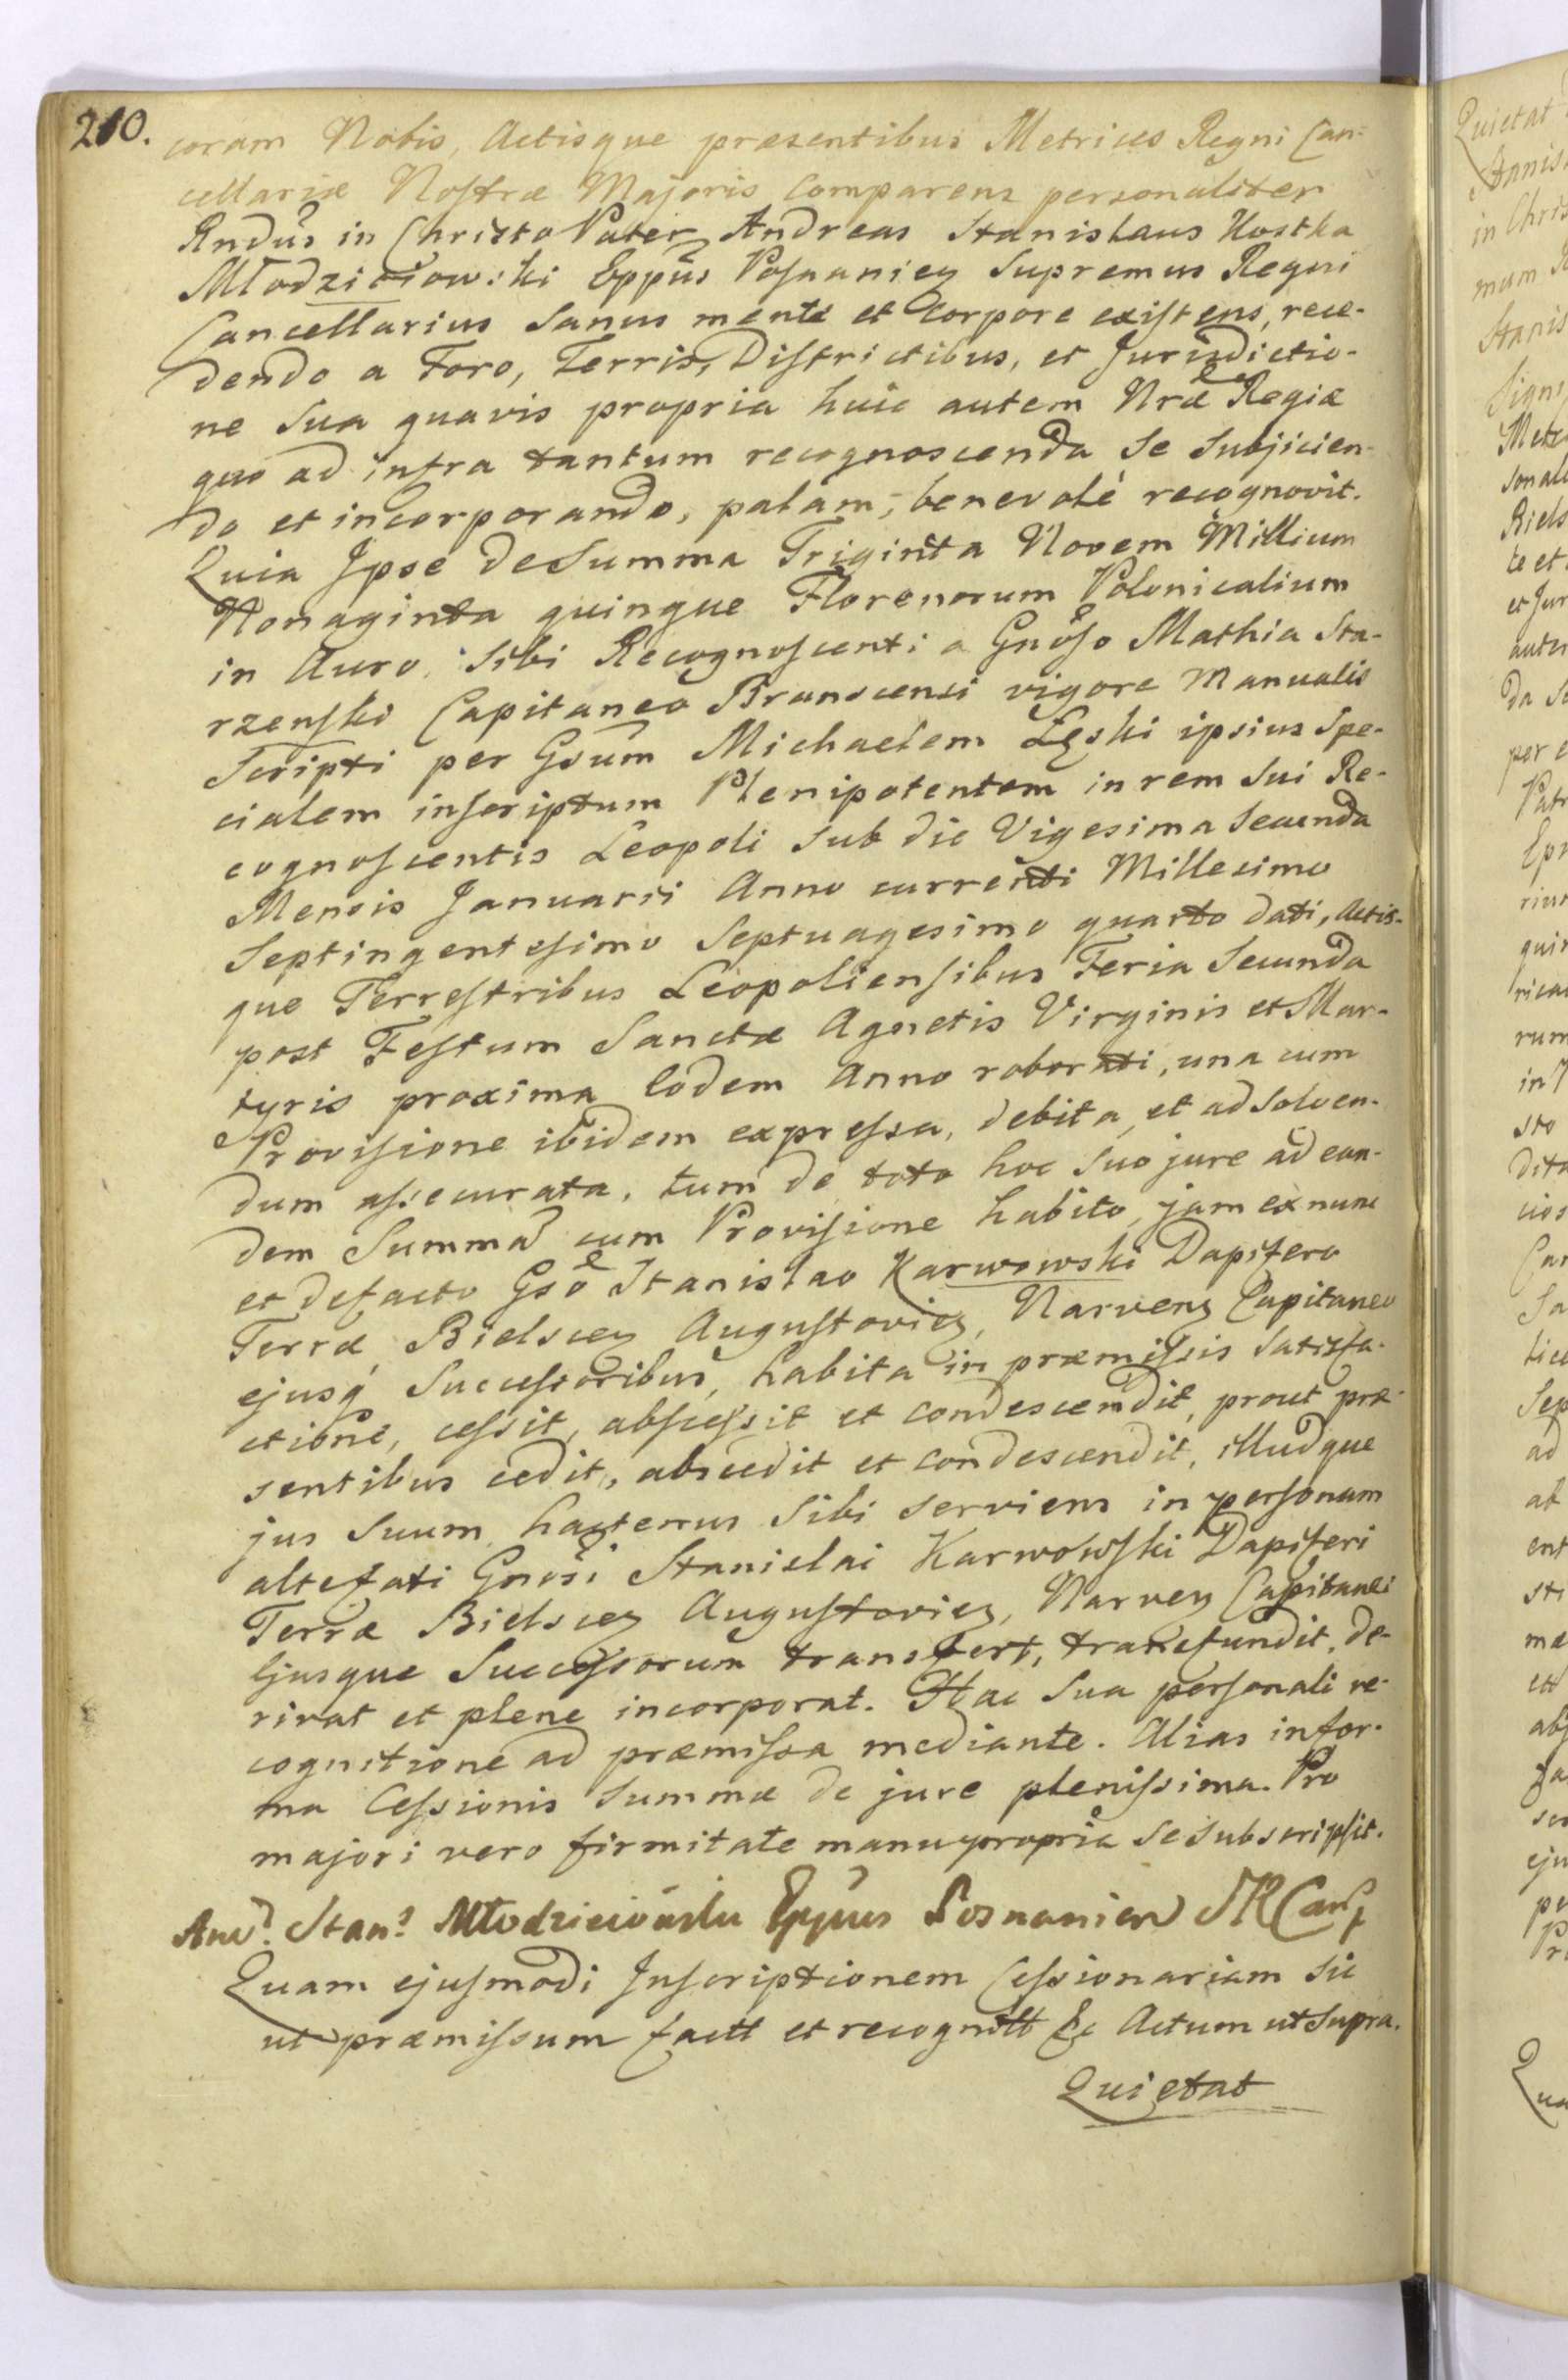 210.
coram Nobis, Actisque præsentibus Metrices Regni Can-
cellariæ Nostræ Majoris Comparens personaliter
Rndus in Christo Pater Andreas Stanislaus Kostka
Młodzieiowski Eppus Posnanien Supremus Regni
Cancellarius Sanus mente et Corpore existens, rece-
dendo a Foro, Terris, Districtibus, et Jurisdictio-
ne Sua quavis propria huic autem Nræ Regiæ
quo ad infra tantum recognoscenda Se Subjicien-
do et incorporando, palam, benevolé recognovit.
Quia Ipse de Summa Triginta Novem Millium
Nonaginta quinque Florenorum Polonicalium
in Auro Sibi Recognoscenti a Gnoso Mathia Sta-
rzenski Capitaneo Branscensi vigore Manualis
Scripti per Gsum Michaelem Łęski ipsius Spe-
cialem inscriptum Plenipotentem in rem Sui Re-
cognoscentis Leopoli Sub die Vigesima Secunda
Mensis Januarii Anno currenti Millesimo
Septingentesimo Septuagesimo quarto dati, Actis-
que Terrestribus Leopoliensibus Feria Secunda
post Festum Sanctæ Agnetis Virginis et Mar-
tyris proxima Eodem Anno roborati, una cum
Provisione ibidem expressa, debita, et ad Solven-
dum assecurata, tum de toto hoc Suo jure ad ean-
dem Summã cum Provisione habito, jam ex nunc
et defacto Gso Stanislao Karwowski Dapifero
Terræ Bielscen Augustovien, Narven Capitaneo
ejusq Successoribus, habita in præmissis Satisfa-
ctione, cessit, abscessit et condescendit, prout præ-
sentibus cedit, abscedit et condescendit, illudque
jus Suum hactenus Sibi Serviens in personam
altefati Gnosi Stanislai Karwowski Dapiferi
Terræ Bielscen Augustovien, Narven Capitanei
Ejusque Successorum transfert, transfundit, de-
rivat et plene incorporat. Hac Sua personali re-
cognitione ad præmissa mediante. Alias in for-
ma Cessionis Summæ de jure plenissima. Pro
majori vero firmitate manu propria Se Subscripsit.
And. Stan. Młodzieiowski Eppus Posnanien
Quam ejusmodi Inscriptionem Cessionariam Sic
ut præmissum factt et recognitt &c Actum ut Supra.
Quietat